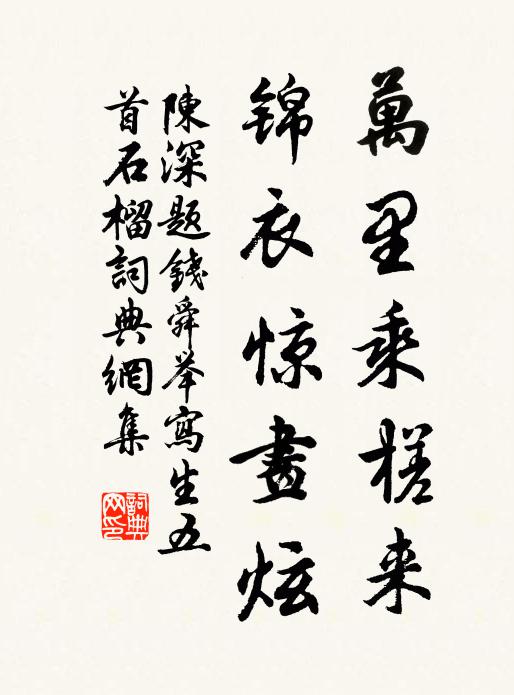 萬里乘槎来
锦衣惊畫炫
陳深题錢舜举寫生五
首石榴詞典網集
詞典网印